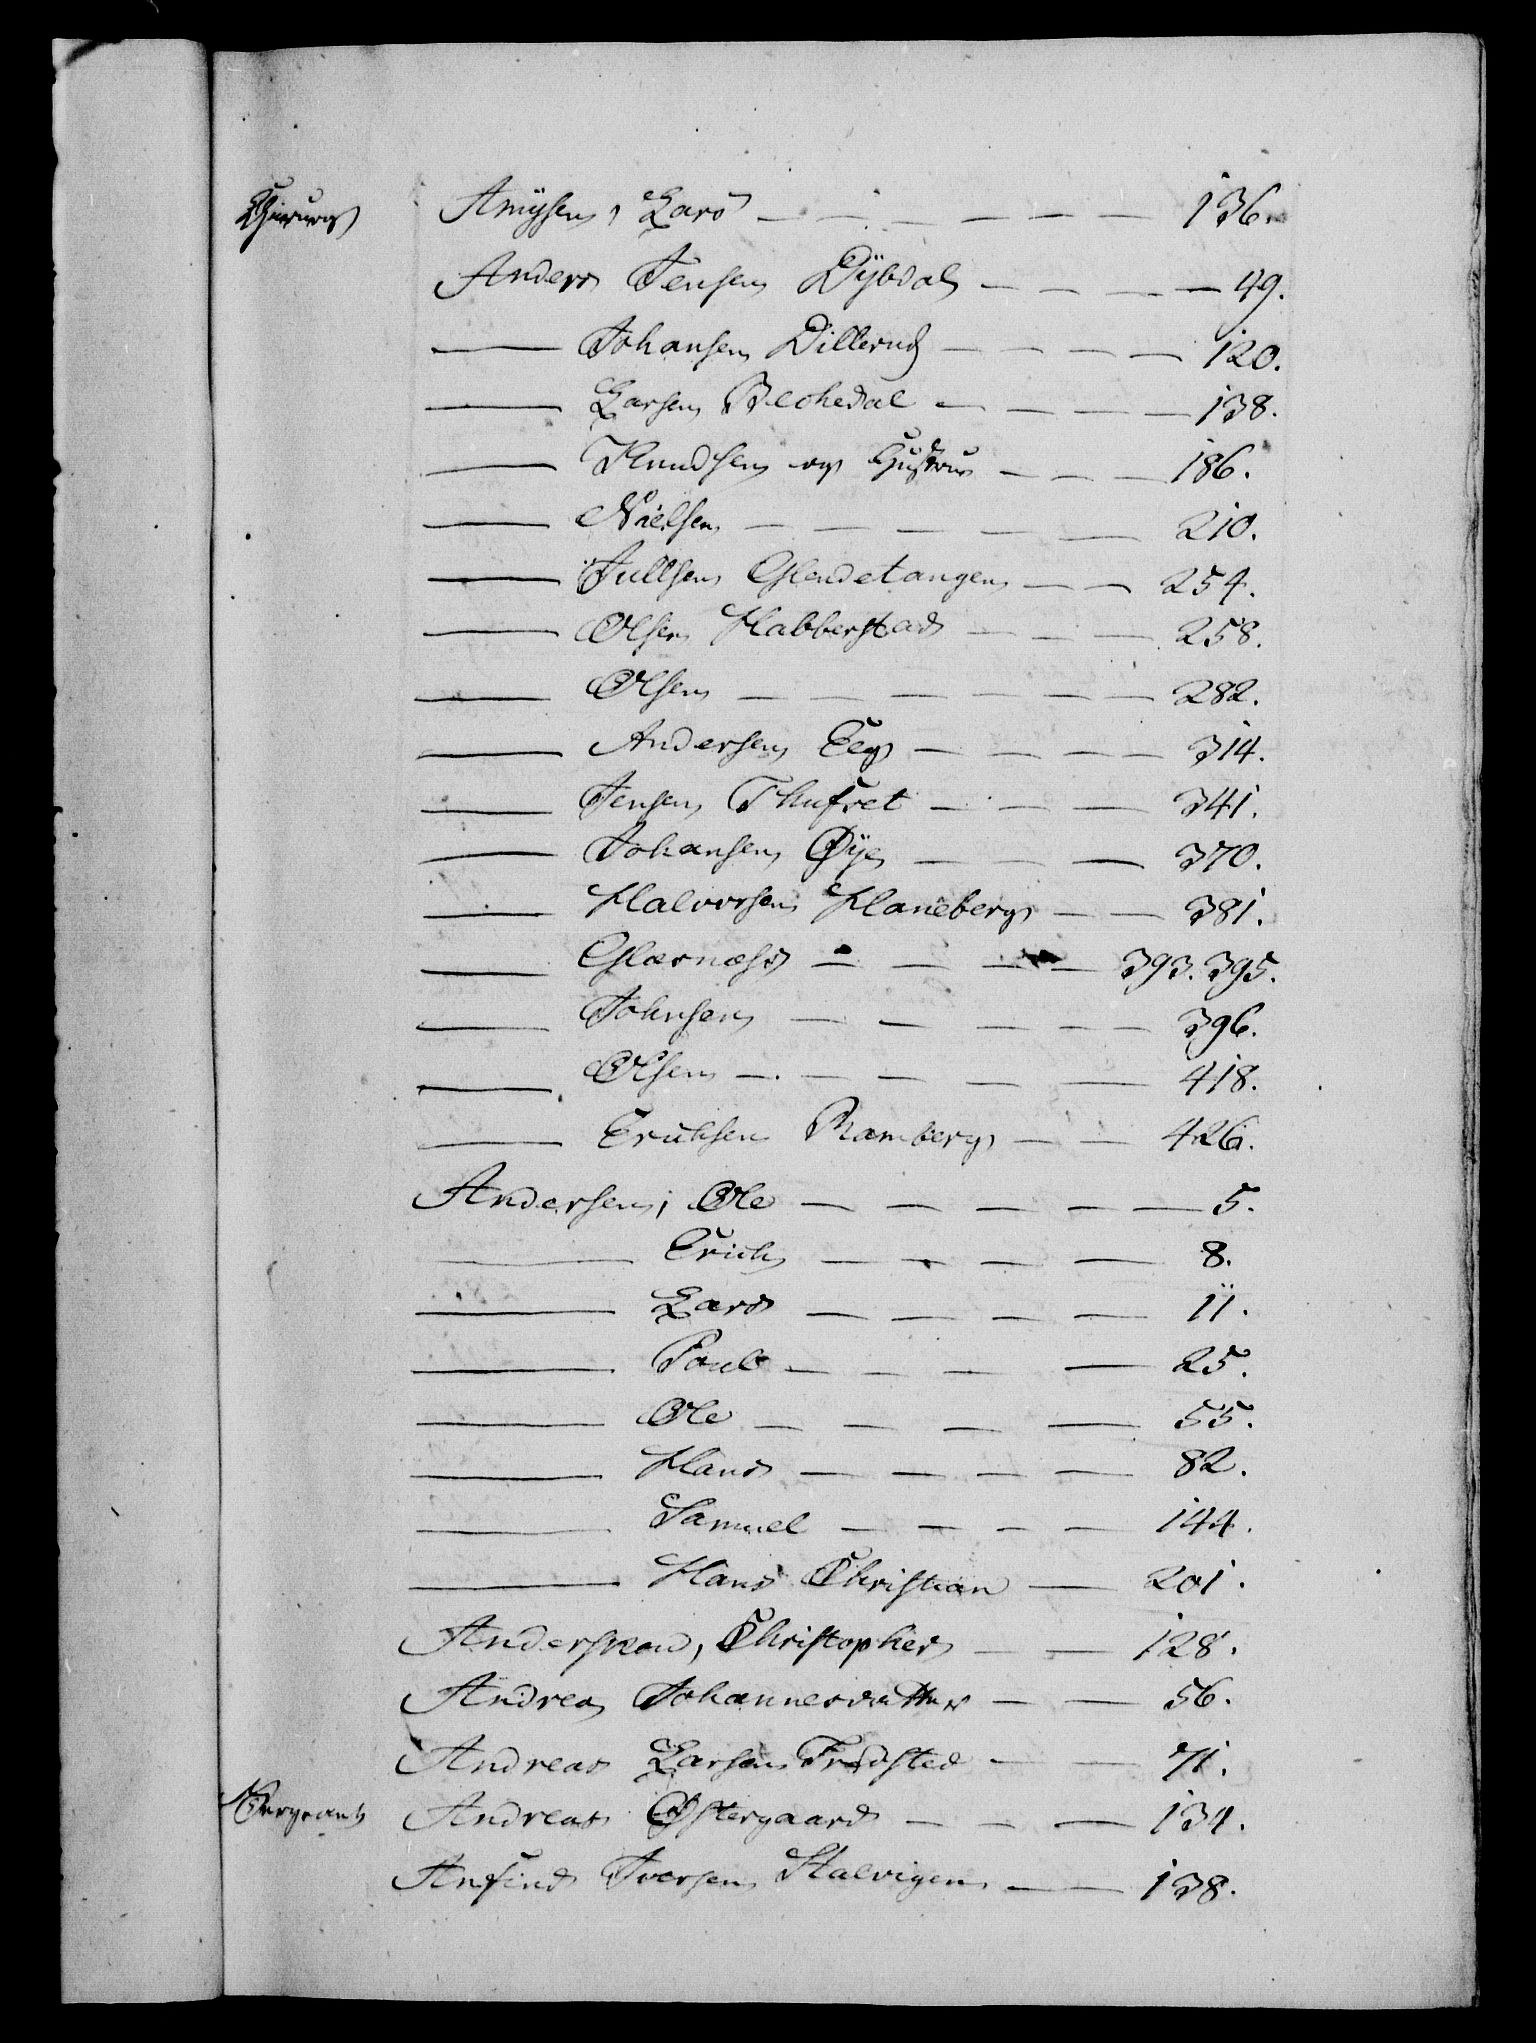 Chirurg Amysen, Lars — — — — — — 136.
Anders Jensen Dybdal — — — — 49.
— Johansen Dillerud — — — — 120.
— Larsen Blohedal — — — — 138.
— Knudsen og Hustrue — — — 186.
— Nielsen — — — — — 210.
— Jullsen Glendetangen — — 254.
— Olsen Habberstad — — — 258.
— Olsen — — — — — — 282.
— Andersen Eeg — — — — 314.
— Jensen Thufret — — — 341.
— Johansen Øye — — — 370.
— Halvorsen Haneberg — — 381.
— Glærnæss — — — — 393. 395.
— Johnsen — — — — — 396.
— Olsen — — — — — 418.
— Erichsen Ramberg — — 426.
Andersen, Ole — — — — — 5.
— Erich — — — — 8.
— Lars — — — — 11.
— Poul — — — — 25.
— Ole — — — — 55.
— Hans — — — — 82.
— Samuel — — — — 144.
— Hans Christian — 201.
Anderskow, Christopher — — 128.
Andrea Johannesdatter — — 56.
Andreas Larsen Fredsted — — 71.
Sergeant Andreas Østergaard — — — 134.
Anfind Iversen Stalvigen — — 138.